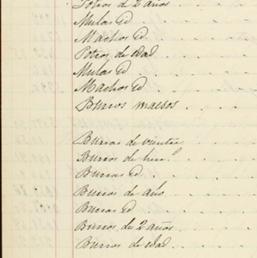 Potros de 2 años
Mulas Ed
Machos Ed.
Potros de Edad
Mulas Ed
Machos Ed
Burros maesos
Burras de vientre
Burros de
Burras Ed
Burros de año
Burras Ed
Burros de 2 años
Burros de Edad